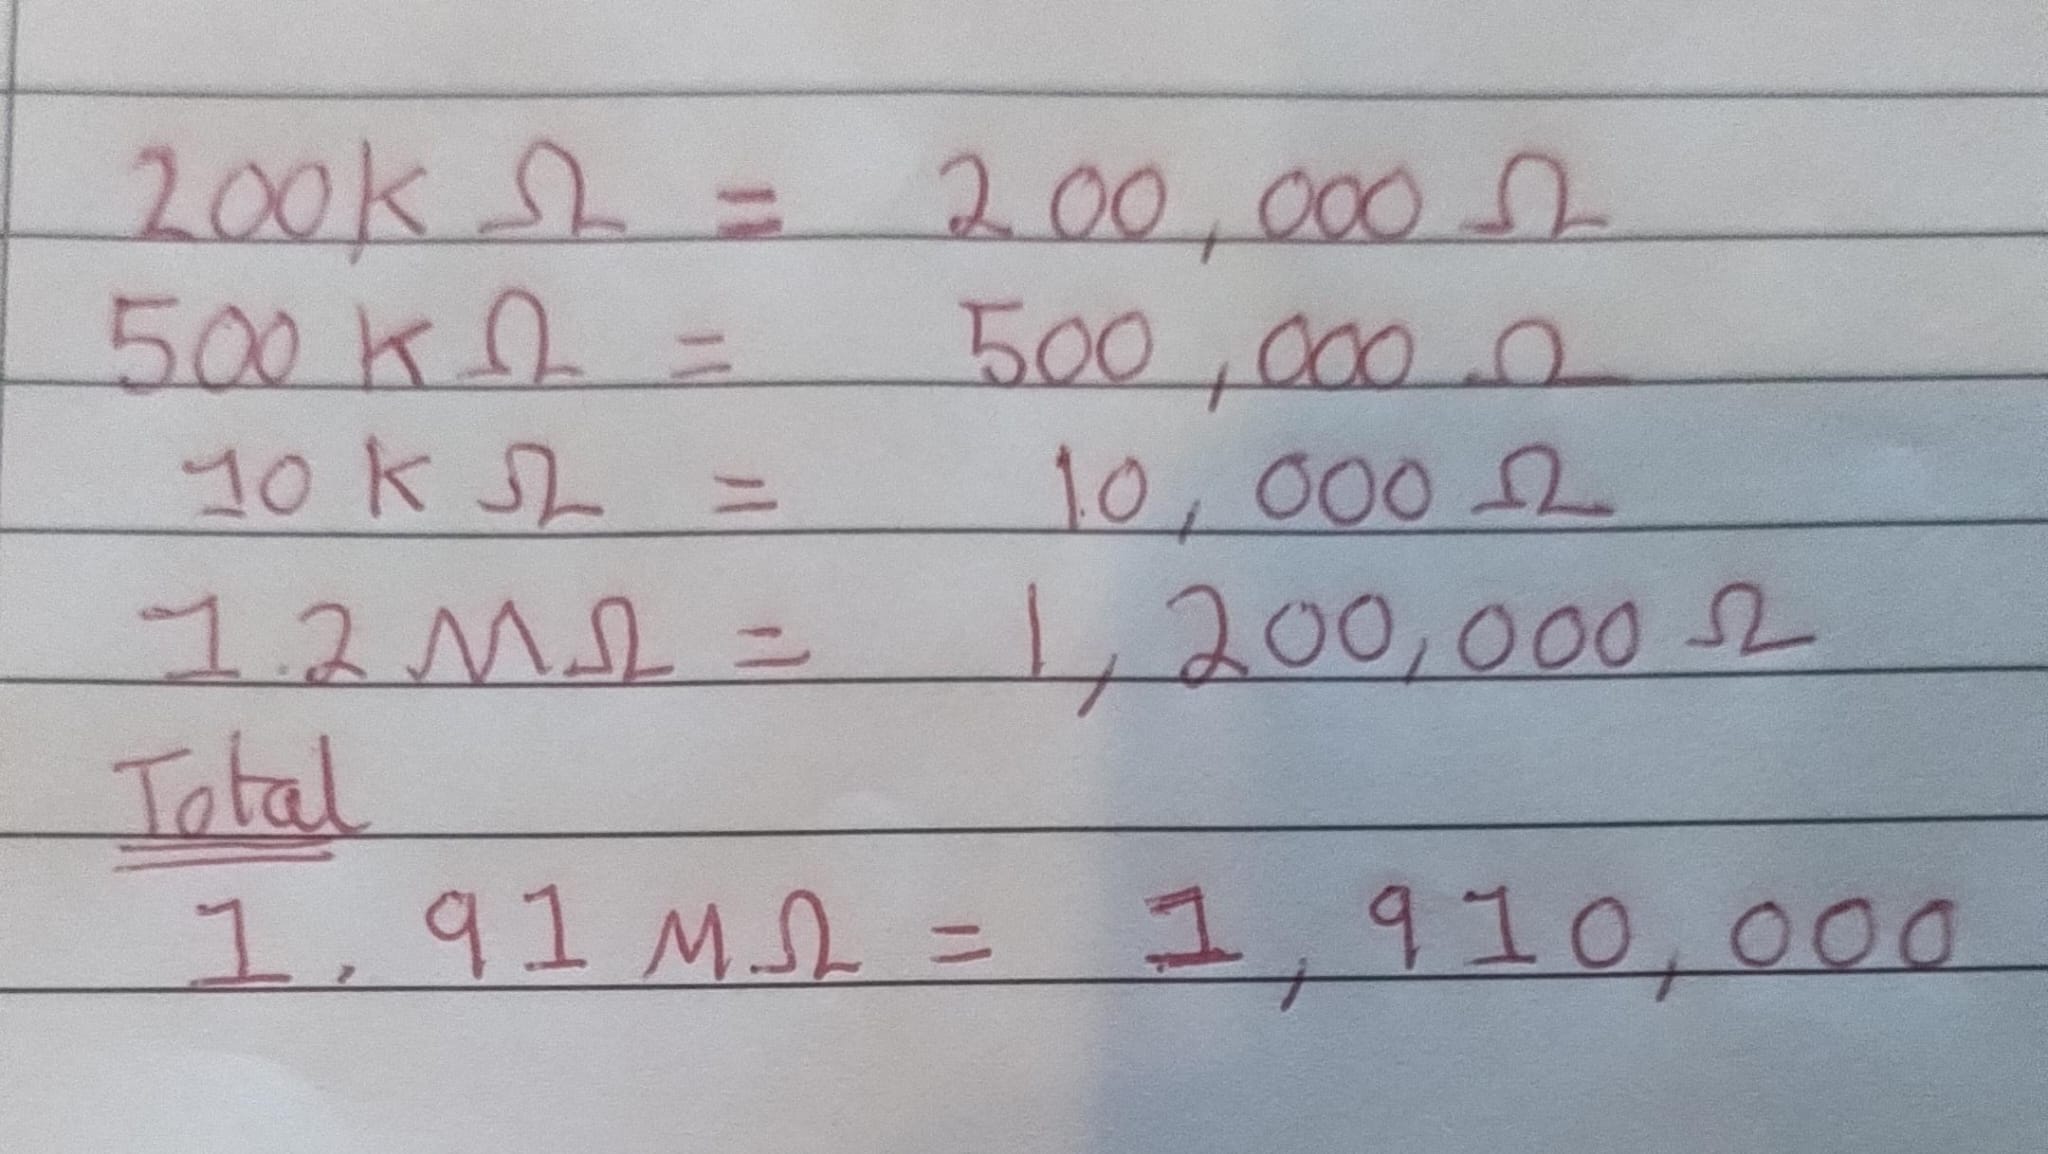 200K Ω = 200,000 Ω
500 K Ω = 500,000 Ω
10 K Ω = 10,000 Ω
1.2 M Ω = 1,200,000 Ω
Total
1.91 M Ω = 1,910,000